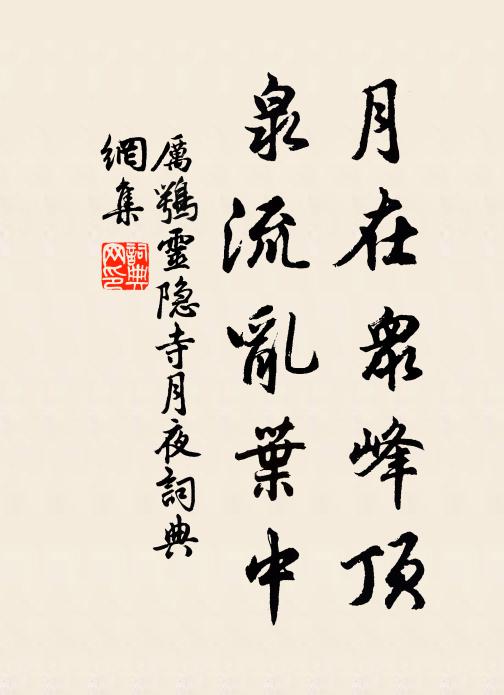 月在衆峰頂
泉流亂葉中
厲鶚靈隐寺月夜詞典
網集
詞典
网印